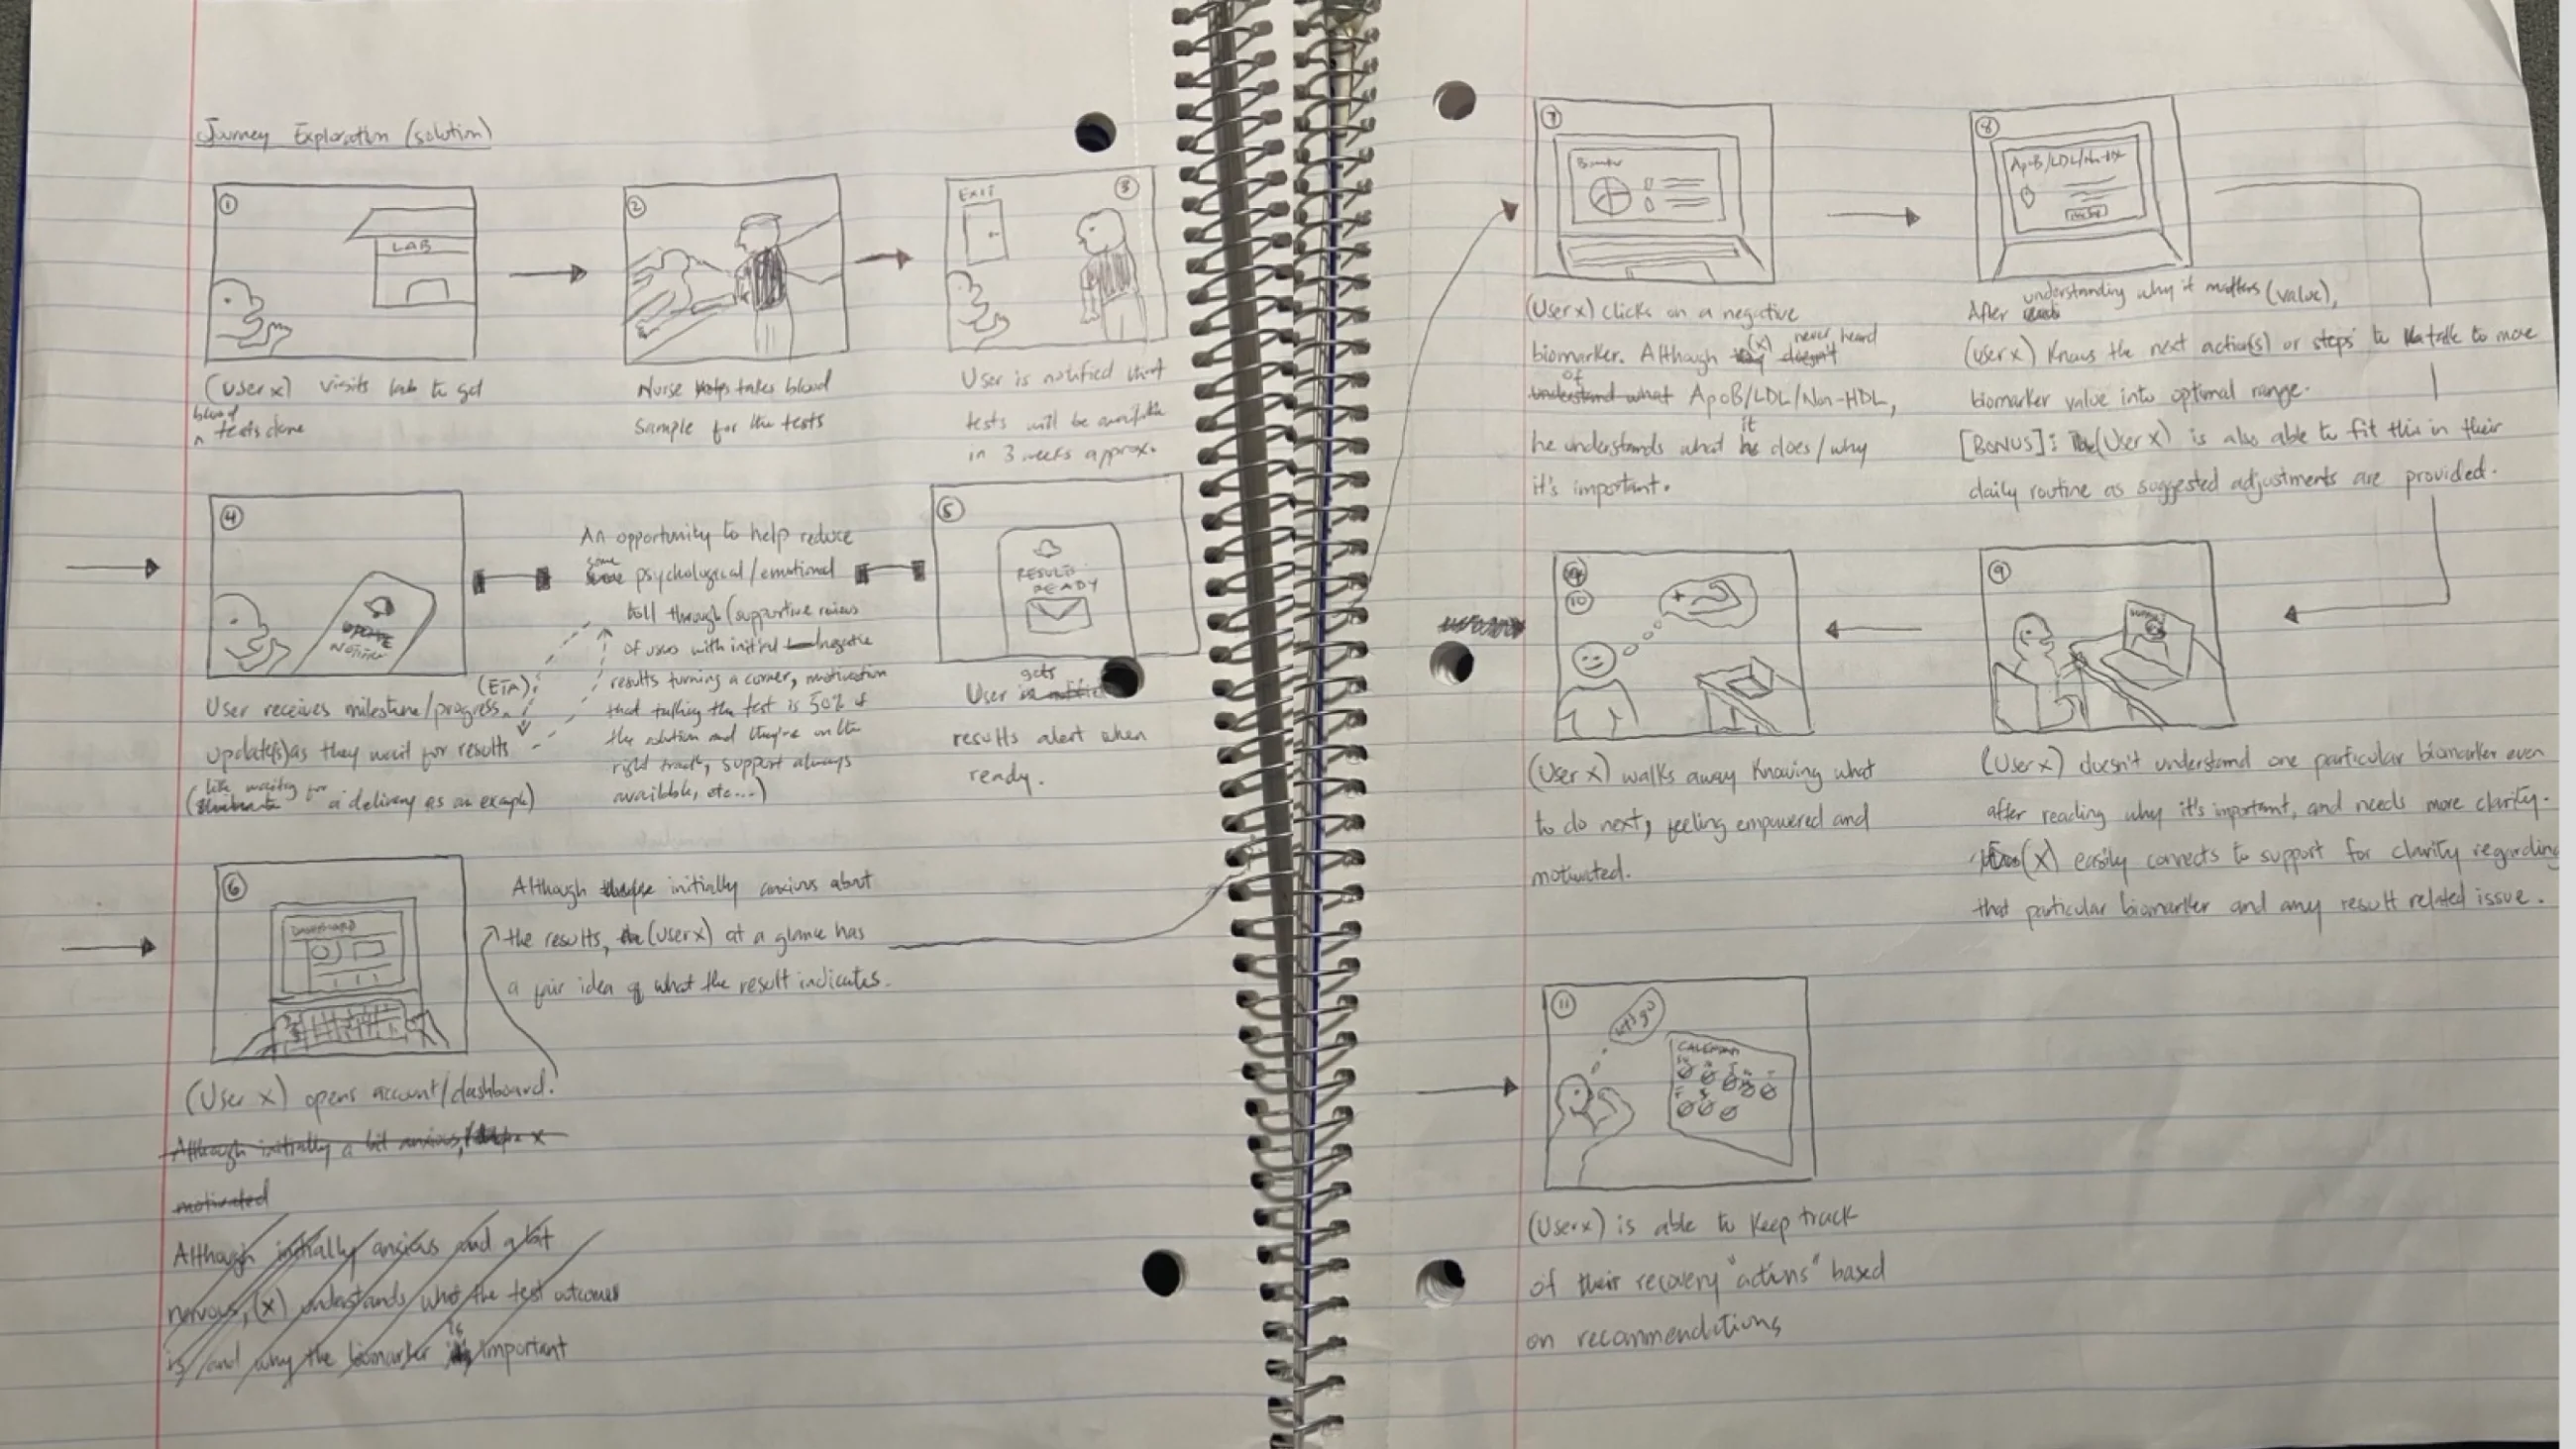 Journey Exploration (solution)
①
LAB
(User x) visits lab to get
blood
^ tests done
②
Nurse takes blood
Sample for the tests
EXIT
③
User is notified that
tests will be available
in 3 weeks approx.
④
User receives milestone/progress
(ETA)
update(s) as they wait for results
(like waiting for
a delivery as an example)
An opportunity to help reduce
some
psychological/emotional
toll through (supportive reviews
of users with initial negative
results turning a corner, motivation
that taking the test is 50% of
the solution and they're on the
right track, support always
available, etc...)
⑤
RESULTS
READY
gets
User
results alert when
ready.
⑥
DASHBOARD
(User x) opens account/dashboard.
Although initially anxious about
the results, (User x) at a glance has
a fair idea of what the result indicates.
Although initially a bit anxious, x
motivated
Although initially anxious and a bit
nervous, (x) understands what the test outcomes
is
is/and why the biomarker important
⑦
(User x) clicks on a negative
(x) never heard
biomarker. Although doesn't
of
understand what ApoB/LDL/Non-HDL,
it
he understands what he does/why
it's important.
⑧
ApoB/LDL/Non-HDL
understanding why it matters (value),
After
(User x) knows the next action(s) or steps to take to move
biomarker value into optimal range.
[BONUS]: (User x) is also able to fit this in their
daily routine as suggested adjustments are provided.
⑨
(User x) doesn't understand one particular biomarker even
after reading why it's important, and needs more clarity.
(x) easily connects to support for clarity regarding
that particular biomarker and any result related issue.
⑩
(User x) walks away knowing what
to do next, feeling empowered and
motivated.
⑪
let's go
CALENDAR
(User x) is able to keep track
of their recovery "actions" based
on recommendations